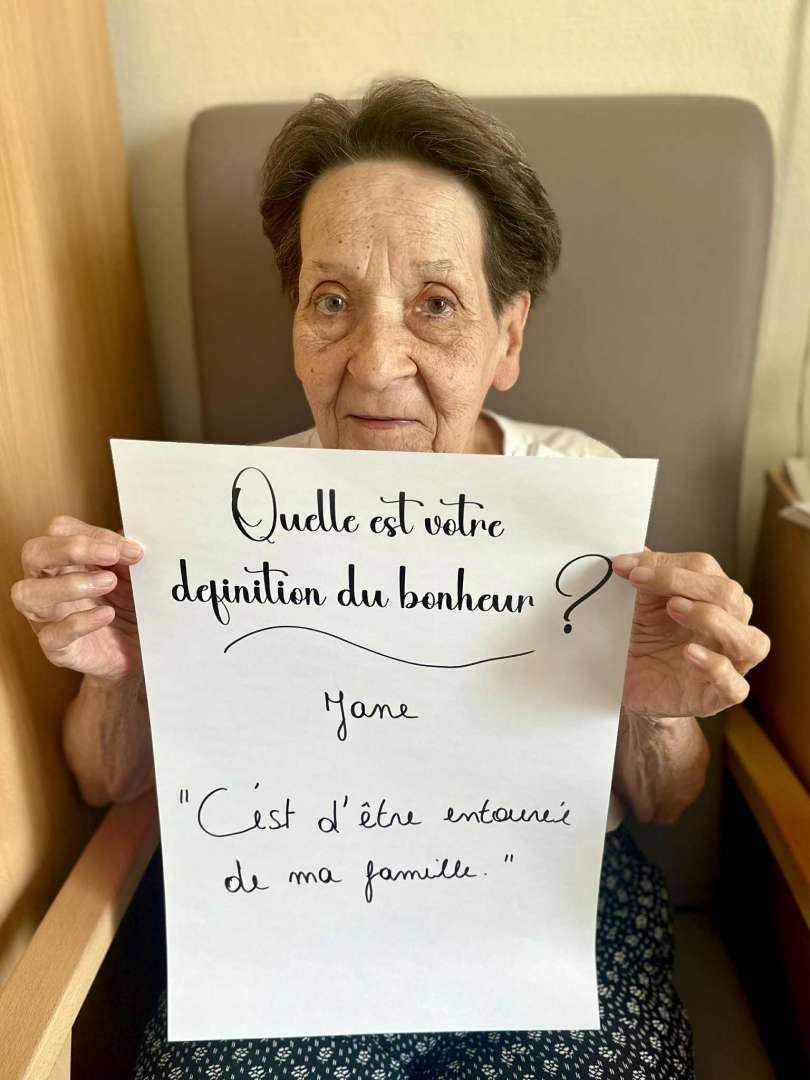 Quelle est votre
definition du bonheur ?
Jane
"C'est d'être entourée
de ma famille."